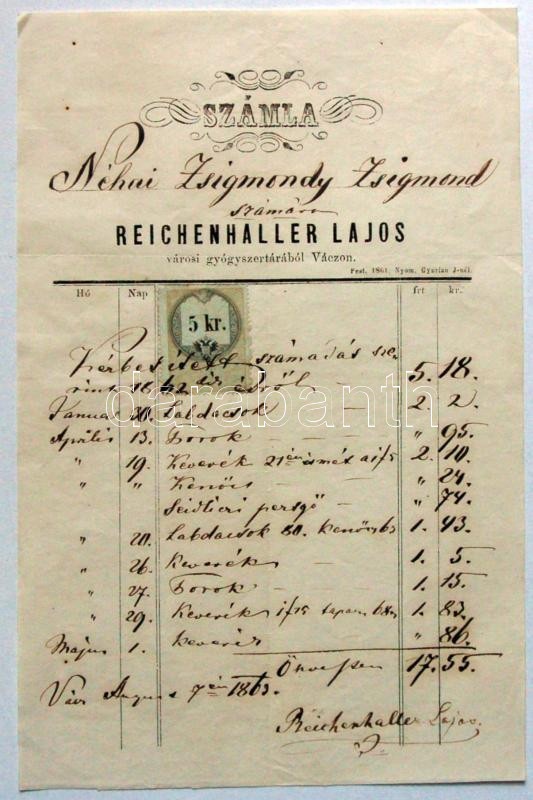 SZÁMLA
Néhai Zsigmondy Zsigmond
számára
REICHENHALLER LAJOS
városi gyógyszertárából Váczon.
Pest, 1861, Nyom. Gyurian J-nél.
Hó Nap frt kr.
5 kr.
számadás sze-
rint 5. 18.
Januar 20. Labdacsok 2 2.
Április 13. Porok " 95.
" 19. Keverék 21 én ismét 2. 10.
" " Kenőcs " 24.
Seidlici pezsgő " 74.
" 20. Labdacsok 80. 1. 43.
" 26. Keverék 1. 5.
" 27. Porok 1. 15.
" 29. Keverék 1. 83.
Május 1. Keverék " 86.
Összvessen 17. 55.
Vácz August 7én 1863.
Reichenhaller Lajos.
darabanth